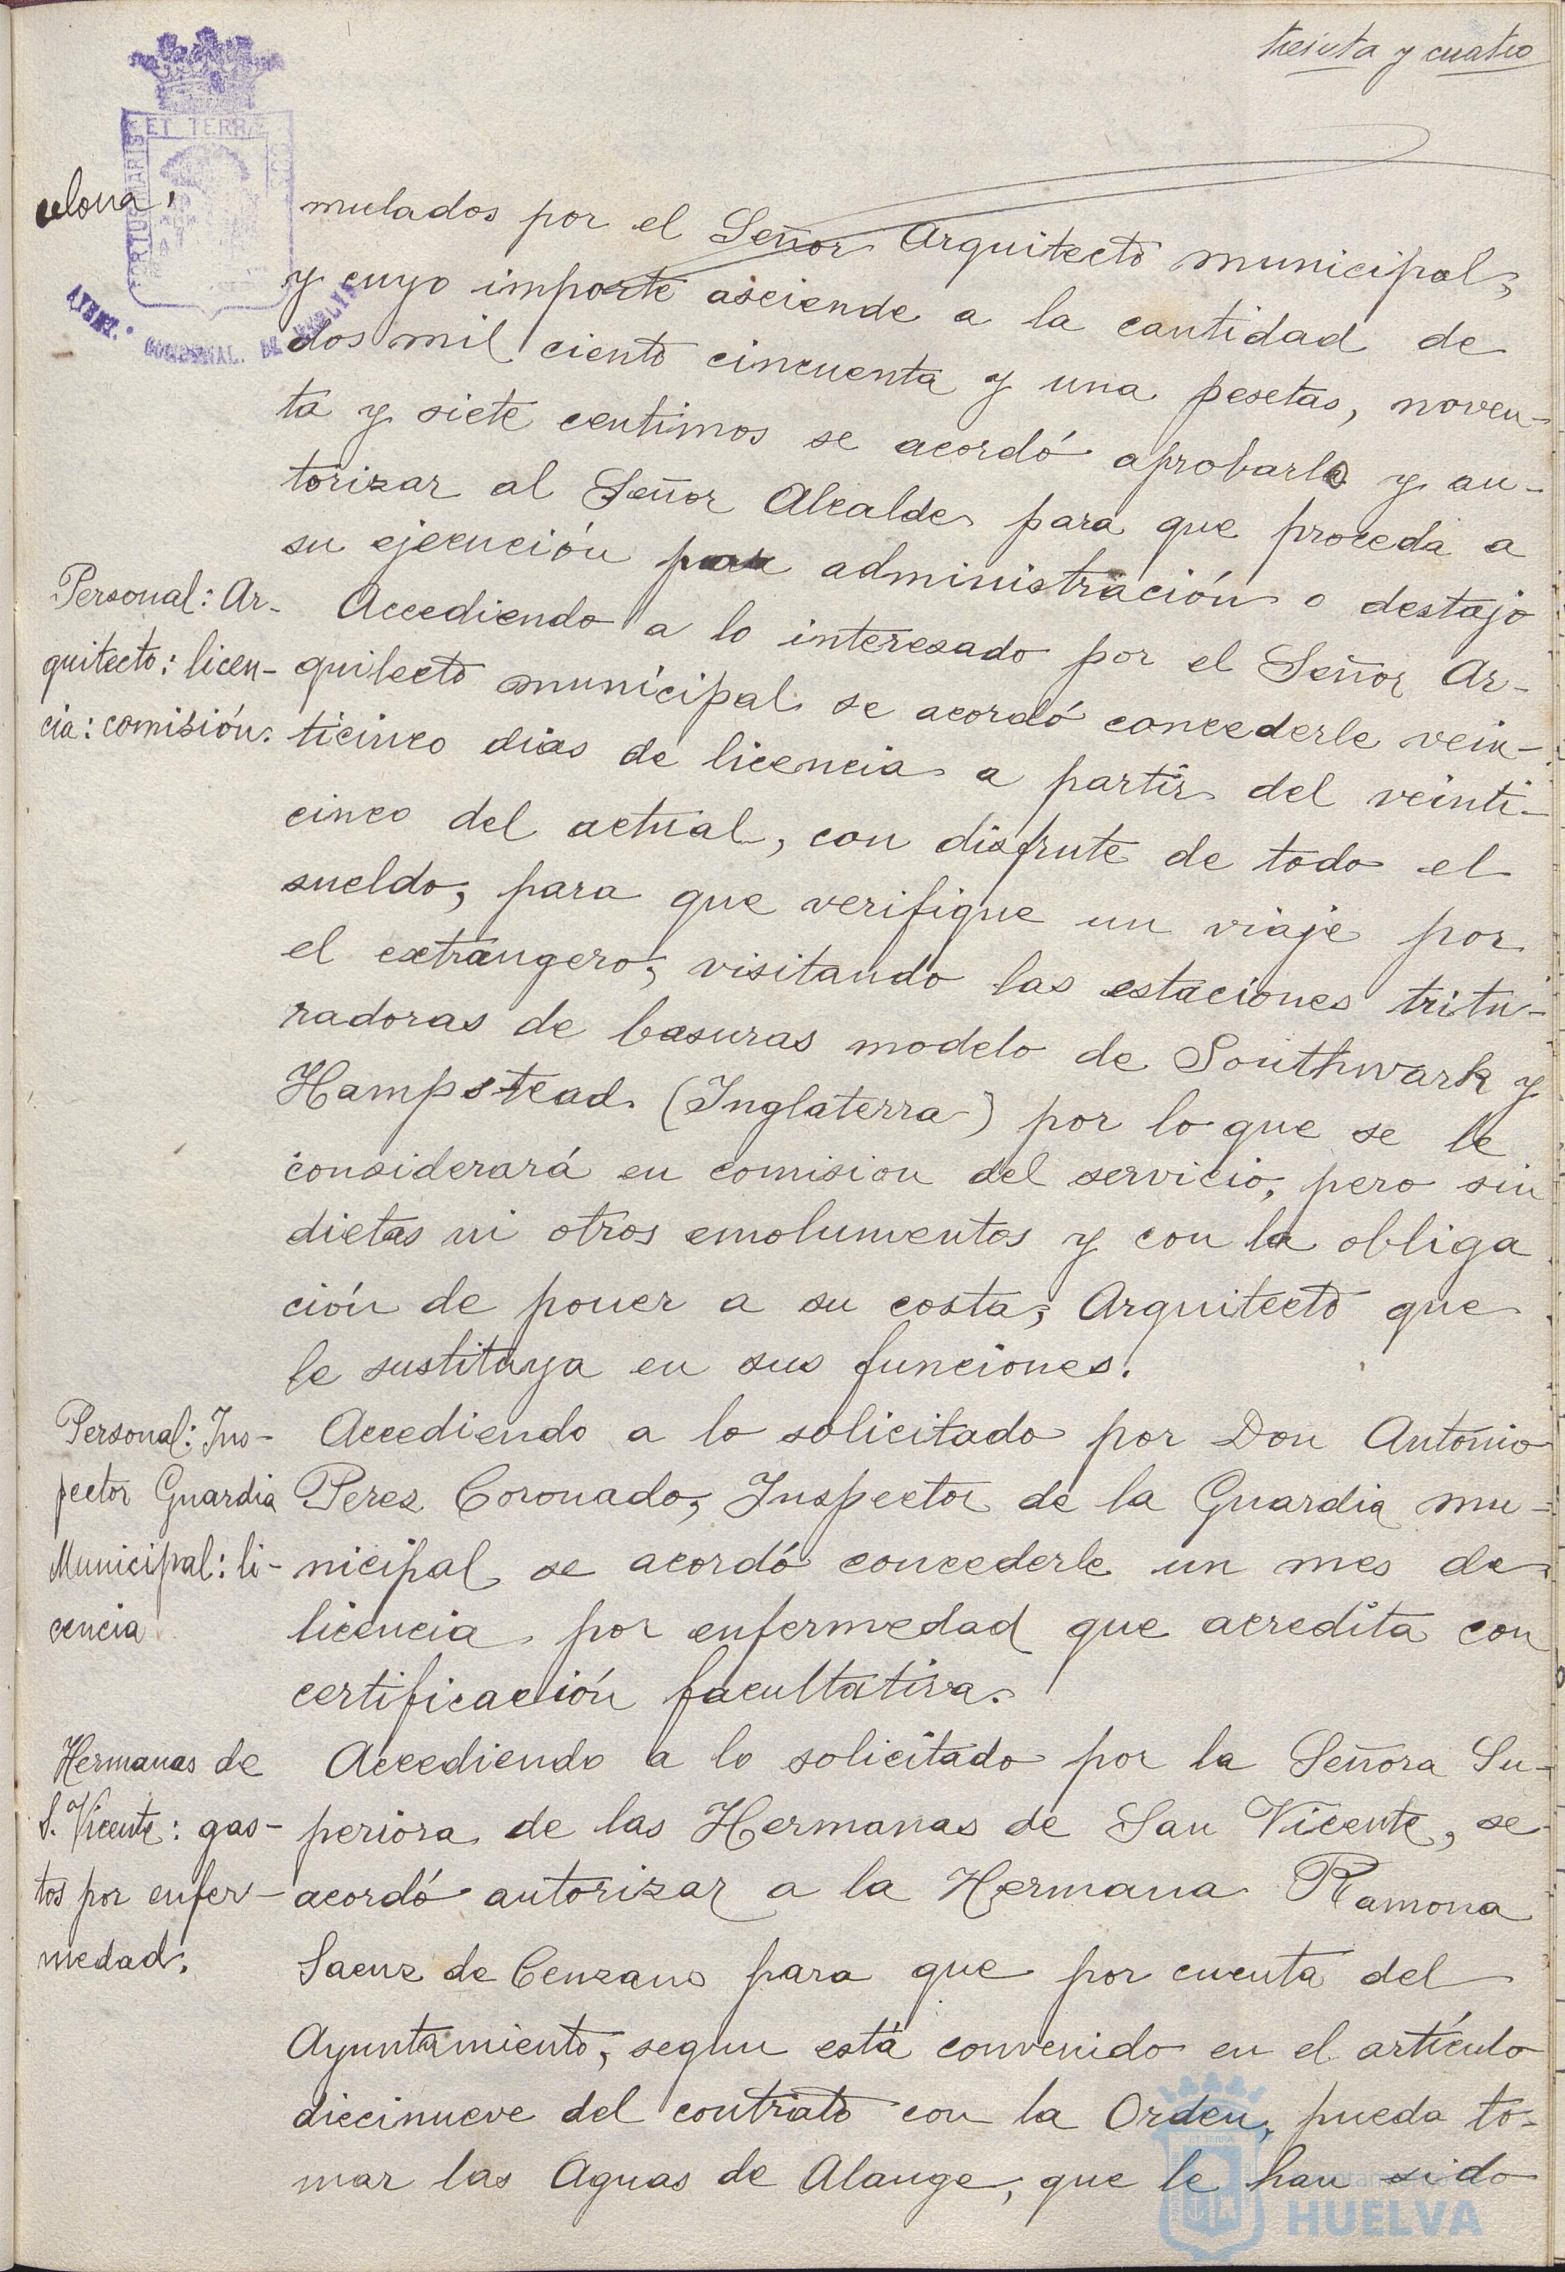 treinta y cuatro
ET TERRA
PORTUS MARIS
AYENT.
DE HUELVA
mulados por el Señor Arquitecto municipal,
y cuyo importe asciende a la cantidad de
dos mil ciento cincuenta y una pesetas, noven-
ta y siete centimos se acordó aprobarlo y au-
torizar al Señor Alcalde para que proceda a
su ejecución por administración o destajo
Personal: Ar-
quitecto: licen-
cia: comisión.
Accediendo a lo interesado por el Señor Ar-
quitecto municipal se acordó concederle vein-
ticinco dias de licencia a partir del veinti-
cinco del actual, con disfrute de todo el
sueldo, para que verifique un viaje por
el extrangero, visitando las estaciones tritu-
radoras de basuras modelo de Southwark y
Hampstead (Inglaterra) por lo que se le
considerará en comision del servicio, pero sin
dietas ni otros emolumentos y con la obliga
ción de poner a su costa, Arquitecto que
le sustituya en sus funciones.
Personal: Ins-
pector Guardia
Municipal: li-
cencia
Accediendo a lo solicitado por Don Antonio
Perez Coronado, Inspector de la Guardia mu-
nicipal se acordó concederle un mes de
licencia por enfermedad que acredita con
certificación facultativa.
Hermanas de
S. Vicente: gas-
tos por enfer-
medad.
Accediendo a lo solicitado por la Señora Su-
periora de las Hermanas de San Vicente, se
acordó autorizar a la Hermana Ramona
Saenz de Cenzano para que por cuenta del
Ayuntamiento, segun está convenido en el artículo
diecinueve del contrato con la Orden, pueda to-
mar las Aguas de Alange, que le han sido
HUELVA